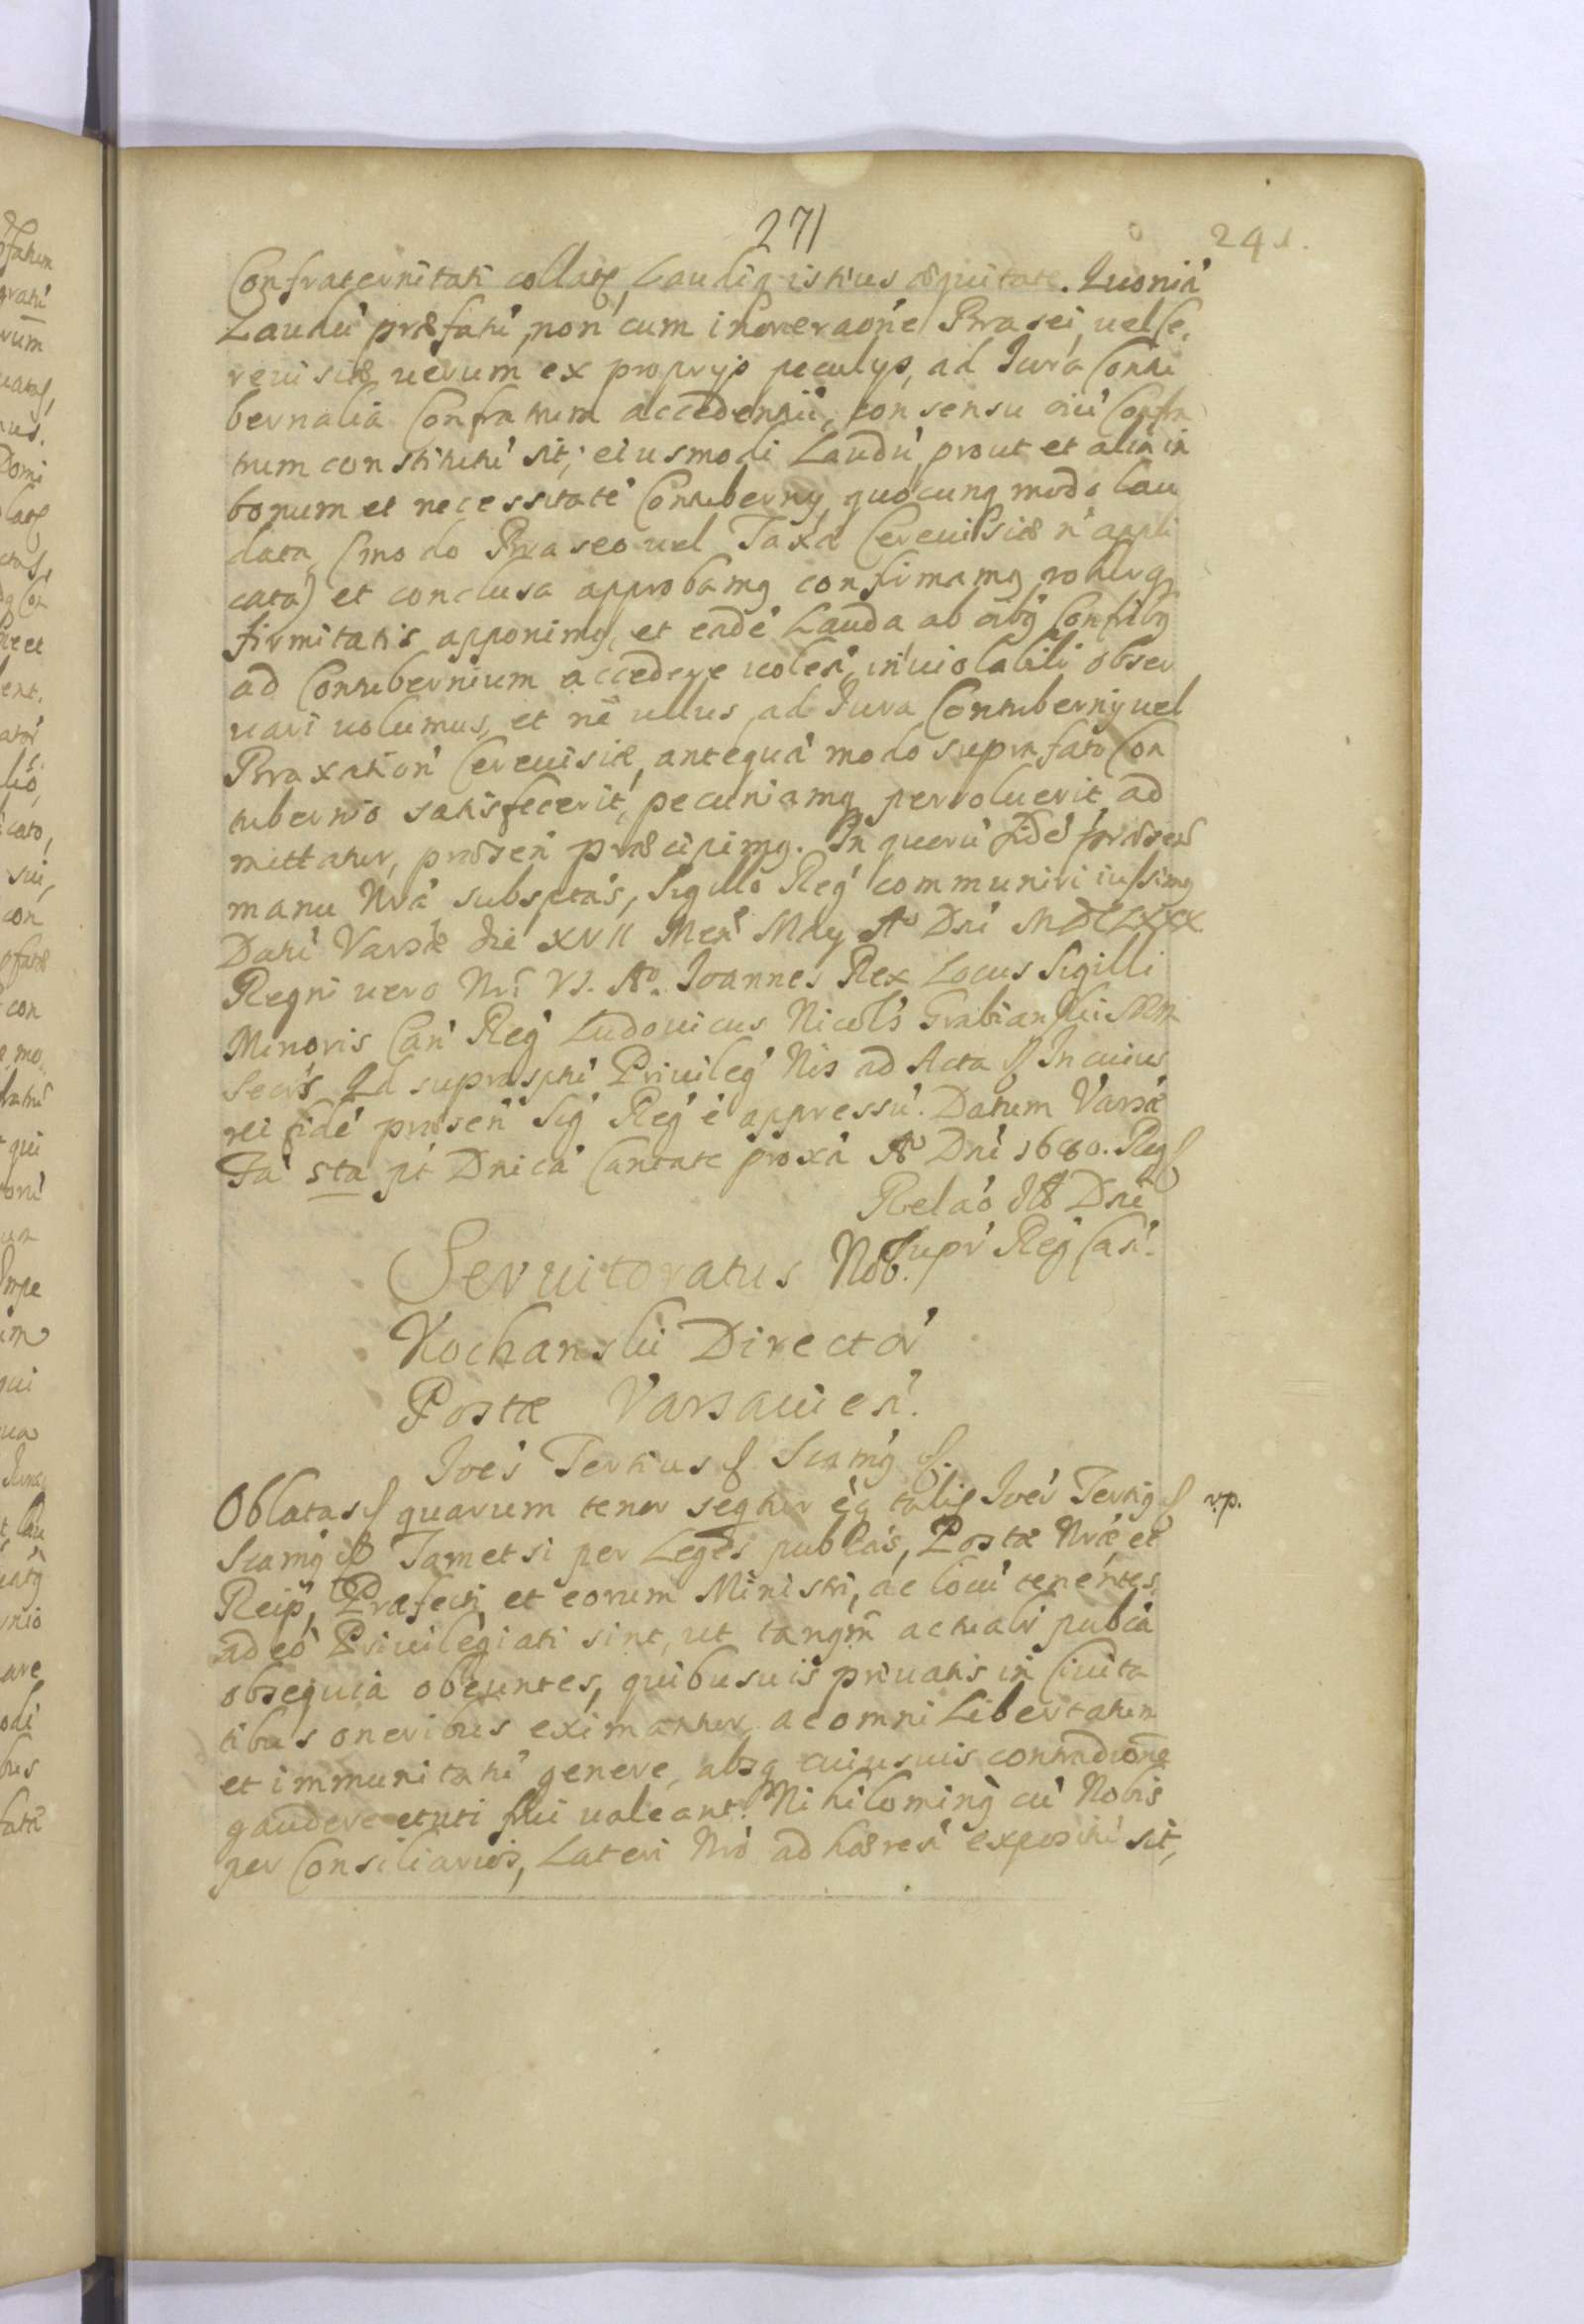 271
241.
Confraternitati collatę, Laudiq istius æquitate. Quoniá
Laudú præfatú, non cum interaoné Braxei, uel Ce,
reuisiæ uerum ex proprijs peculijs, ad Iura Contu
bernalia Confratrum accedentiú, consensu oiú Confra
trum constitutú sit; eiusmodi Laudú, prout et alia in
bonum et necessitaté Contubernij quocunq modo lau
data, (modo Braxeo uel Taxá Cereuisiæ ń appli
cata) et conclusa approbamq confirmamq roburq
firmitatis apponimq, et eadé Lauda ab oibq Confribq
ad Contubernium accedere uoleń, inuiolabili obser
uari uolumus, et né ullus, ad Iura Contubernij uel
Braxatioń Cereuisiæ, antequá modo suprafato Con
tubernio satisfecerit, pecuniamq persoluerit ad
mittatur, præseń præcipimq. In quorú fidé præseń
manu Nrá subsptás, Sigillo Reg communiri iussimq
Datú Varsæ die XVII Meń Maij Aº Dni MDCLXXX
Regni uero Nri VI. Aº. Ioannes Rex Locus Sigilli
Minoris Cań Reg Ludouicus Nicol's Grabianski SRM
Secr's Qd suprasptú Priuileg Nis ad Acta In cuius
rei fidé præseń Sig Reg é appressú. Datum Varsæ
Fá sta pt Dnicá Cantate proxá Aº Dni 1680. Reg
Relaó Dni
Supr Reg Cań.
Seruitoratus Nob.
Kochanski Directoŕ
Postæ Varsauień.
Ioés Tertius Scamg
Oblatas quarum tenor seqtur éq talis Ioés Tertiq
r.p.
Scamg Tametsi per Leges publcás, Postæ Nræ et
Reip, Præfecti et eorum Ministri, ac locú tenéntes,
adeó Priuilègiati sint, ut tanqm̃ actuali publcá
obsequiá obeuntes, quibusuis priuatis in Ciuita
tibus oneribus eximantur, ac omni Libertatum
et immunitatú genere, absq cuiusuis contradione
gaudere et uti frui ualeant. Nihilominq cú Nobis
per Consiliarios, Lateri Nró adhæreń expositú sit,